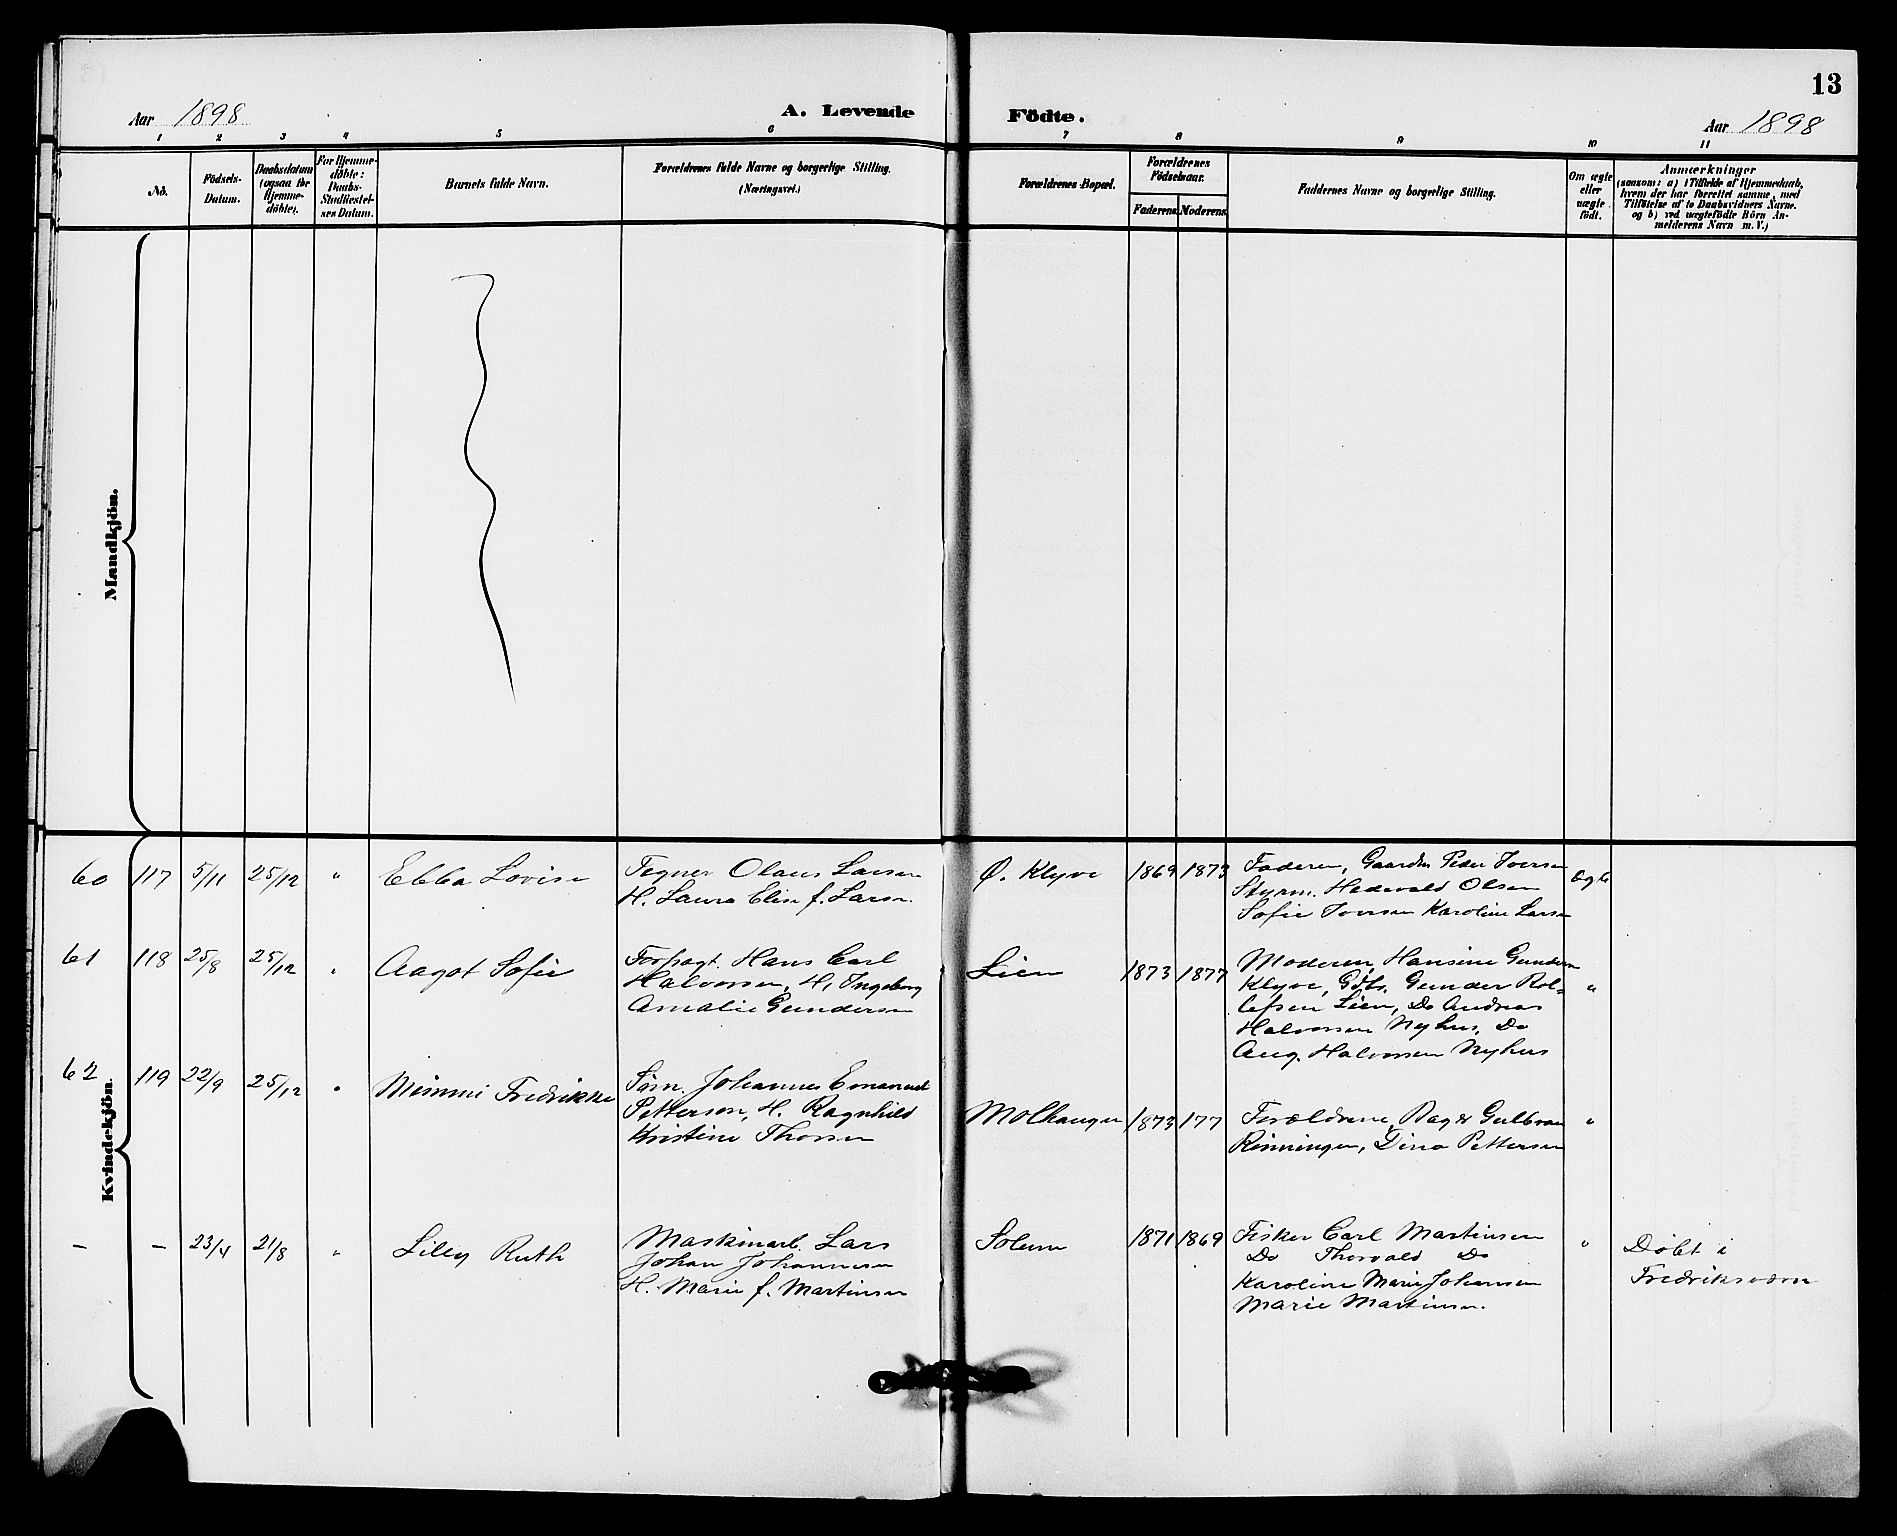 13
Aar 1898
A. Levende
Födte.
Aar 1898
1 2 3 4 5 6 7 8 9 10 11
No.
Födsels-
Datum.
Daabsdatum
(ogsaa for
Hjemme-
döbte).
For Hjemme-
döbte:
Daabs-
Stadfæstel-
ses Datum.
Barnets fulde Navn.
Forældrenes fulde Navne og borgerlige Stilling.
(Næringsvei.)
Forældrenes Bopæl.
Forældrenes
Födselsaar.
Faderens.
Moderens.
Faddernes Navne og borgerlige Stilling.
Om ægte
eller
uægte
födt.
Anmærkninger
(saasom: a) i Tilfælde af Hjemmedaab,
hvem der har forrettet samme, med
Tilföielse af to Daabsvidners Navne.
og b) ved uægtefödte Börn An-
melderens Navn m. V.)
Mandkjön.
Kvindekjön.
60 117 5/11 25/12 " Ebba Lovise
Tegner Olaus Larsen
H. Laura Elise f. Larsn.
Ø. Klyve 1869 1873
Faderen, Gaardbr Peder Iversen
Styrm. Hedevald Olsen
Sofie Iversen Karoline Larsen
Ægte
61 118 25/8 25/12 " Aagot Sofie
Forpagt. Hans Carl
Halvorsen, H. Ingeborg
Amalie Gundersen
Lien 1873 1877
Moderen, Hansine Gundersen
Klyve, Gdbr. Gunder Rol-
lefsen Lien, Do Andreas
Halvorsen Nyhus, Do
Aug. Halvorsen Nyhus
"
62 119 22/9 25/12 " Mimmi Fredrikke
Søm. Johannes Emanuel
Petterson, H. Ragnhild
Kristine Thorsen
Molhaugen 1873 177
Forældrene, Bag&
Rinningen, Dina Pettersen
"
– – 23/4 21/8 " Lilly Ruth
Maskinarb. Lars
Johan Johannesen
H. Marie f. Martinsen
Solum 1871 1869
Fisker Carl Martinsen
Do Thorvald Do
Karoline Marie Johansen
Marie Martinsen.
"
Døbt i
Fredriksværn